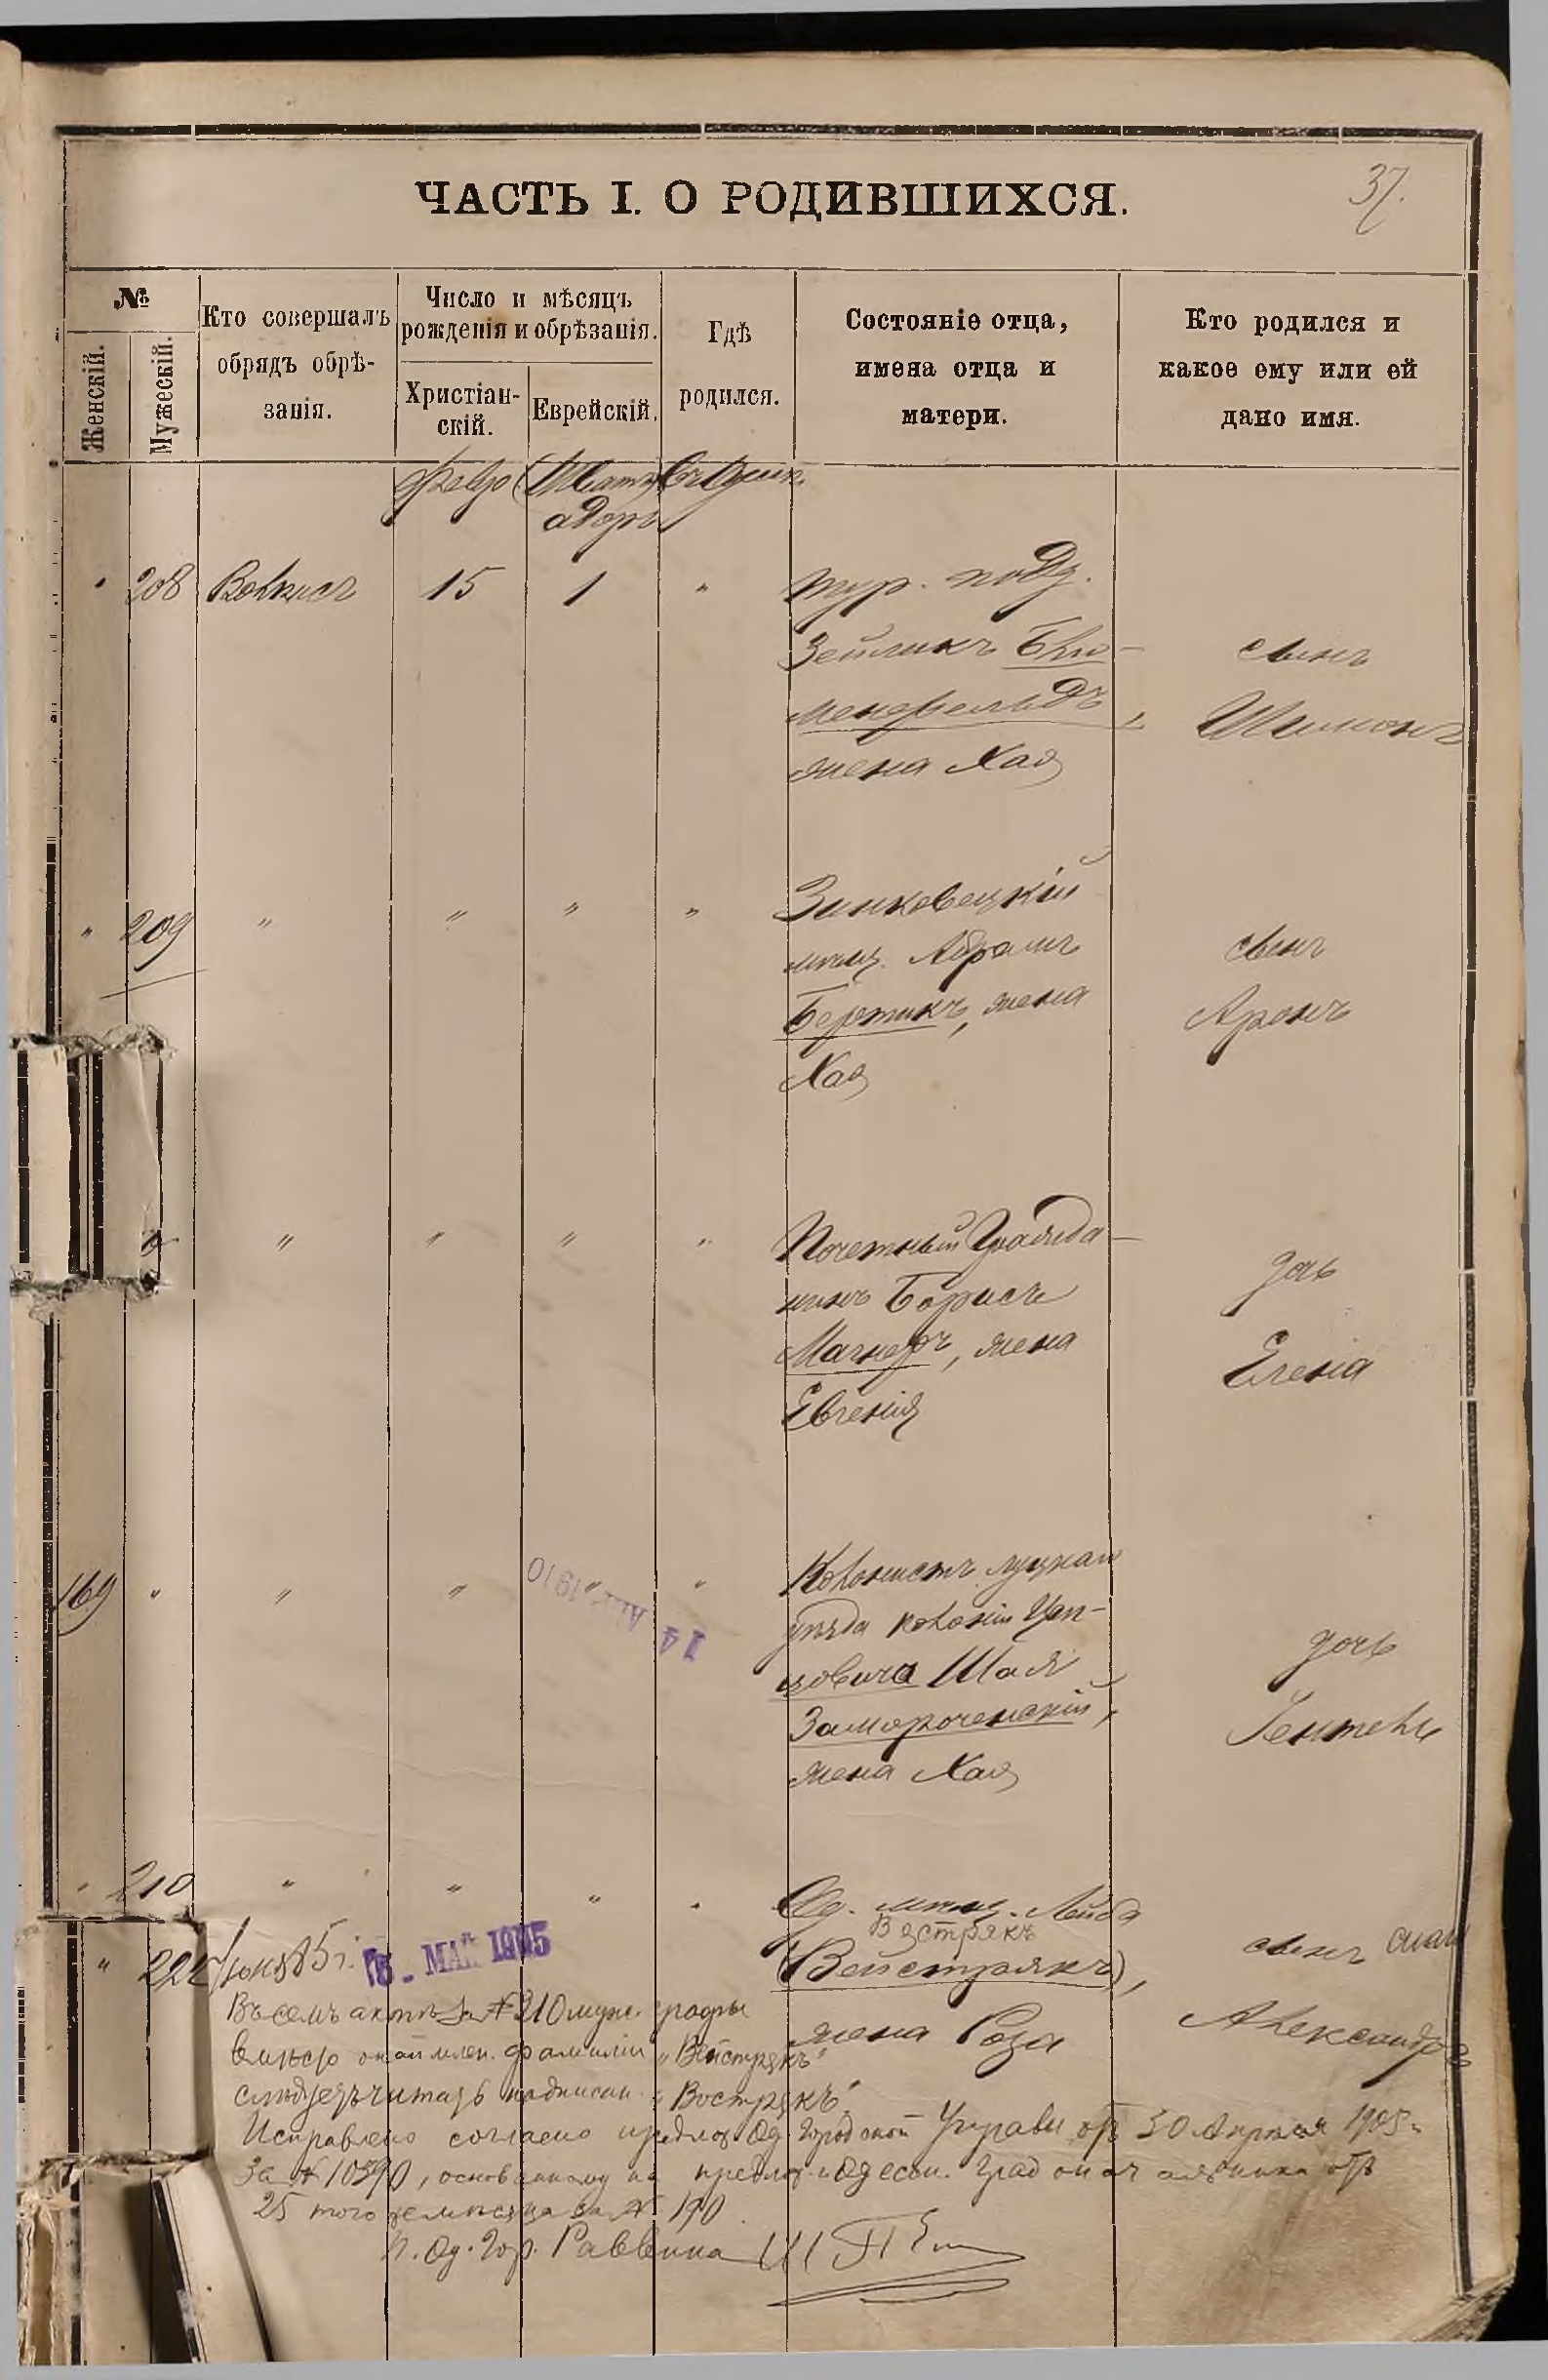 ЧАСТЬ I. О РОДИВШИХСЯ.
37.
№
Женскій.
Мужескій.
Кто совершалъ
обрядъ обрѣ-
занія.
Число и мѣсяцъ
рожденія и обрѣзанія.
Христіан-
скій.
Еврейскій.
Гдѣ
родился.
Состояніе отца,
имена отца и
матери.
Кто родился и
какое ему или ей
дано имя.
Февр (Шватъ)
адаръ
208 15 1 " тур. подд.
Зейликъ Блю-
менфельдъ,
жена Хая
сынъ
Шимонъ
" 209 " " " " Зинковецкій
мѣщ. Абрамъ
Бертикъ, жена
Хая
сынъ
Аронъ
" " " " Почетный Гражда-
нинъ Борисъ
Магнеръ, жена
Евгенія
дочь
Елена
169 " " " " " Колонистъ луцкаго
уѣзда колоніи
Шая
Замороченскій,
жена Хая
дочь
Гентель
14 1910
" 210 " " " " Од. мѣщ. Лейба
Вострякъ
(Вейстрякъ),
жена Роза
сынъ
Александръ
" 15 МАЙ 1905
Въ семъ актѣ за № 210 муж. графы
вмѣсто фамиліи „Вейстрякъ"
слѣдуетъ читать „Вострякъ".
Исправлено согласно предлож. Од. Городской Управы отъ 30 Апрѣля 1905 г.
за № 10590, основанному на предлож. Одесск. Градоначальника отъ
25 того же мѣсяца за № 190.
И. Од. Гор. Раввина